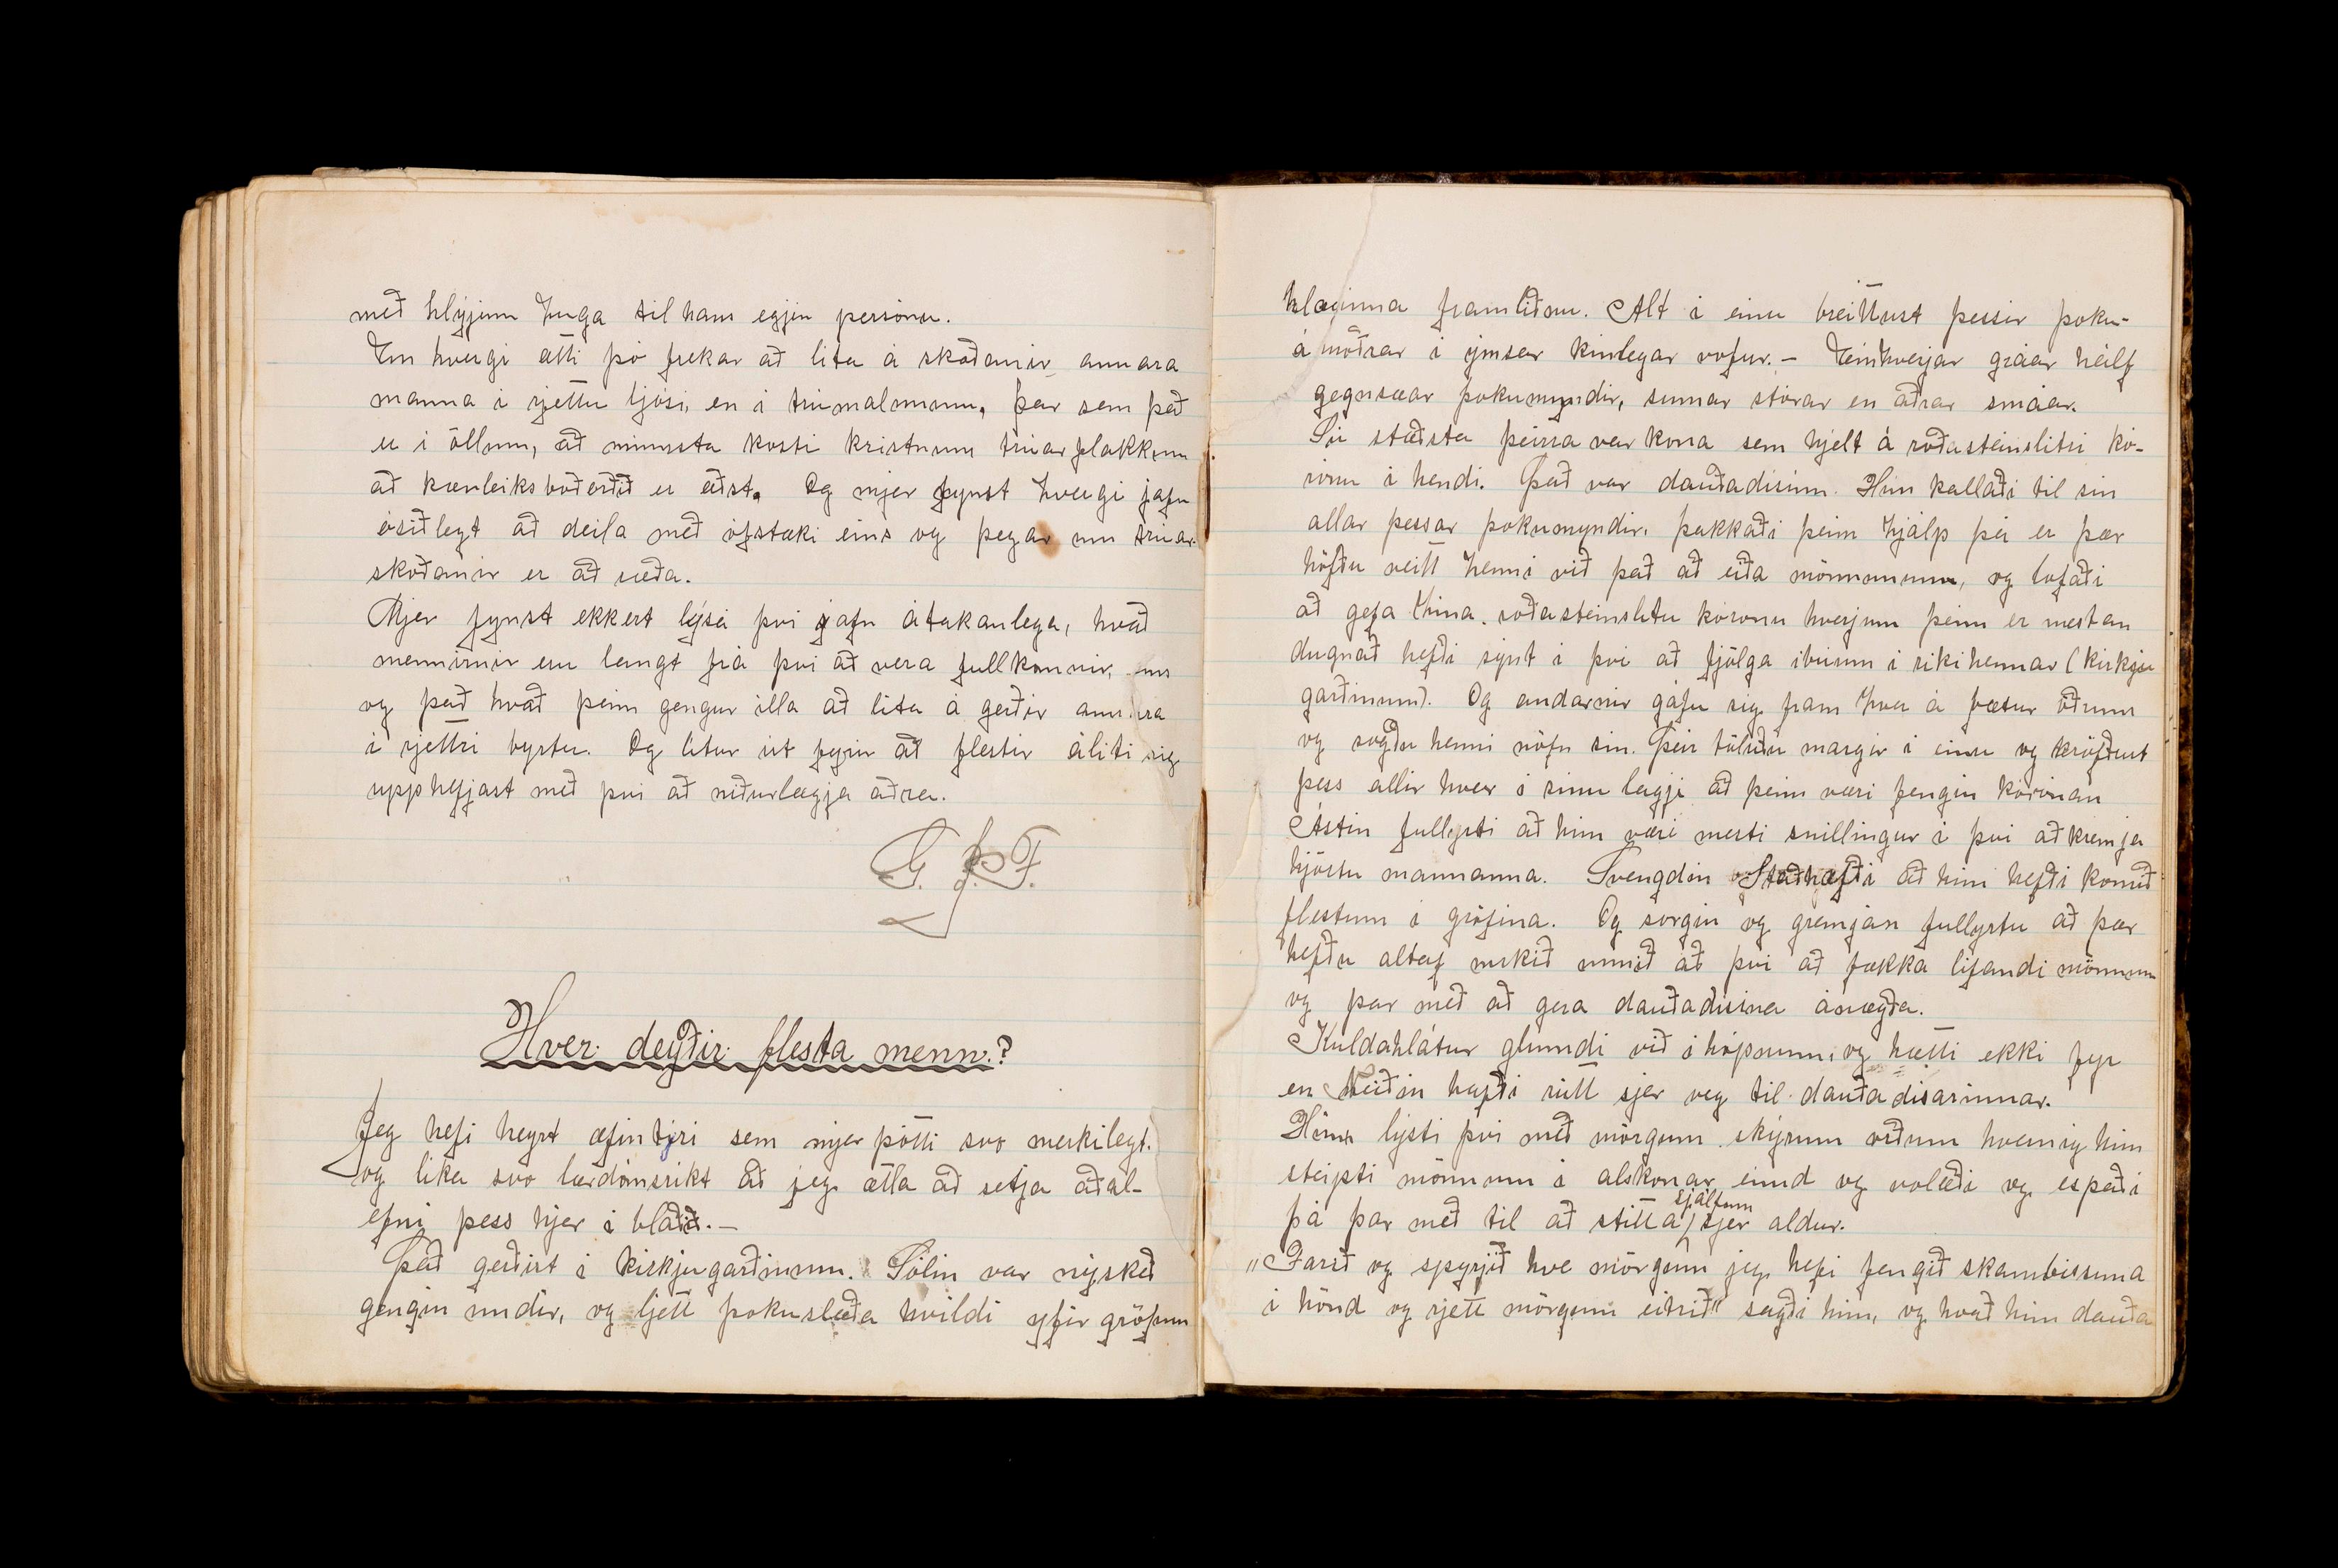 með hlýjum huga til hans eigin persónu.
En hvergi ætti þó frekar að lita á skoðanir annara
manna i rjettu ljósi, en i trúmálunum, þar sem það
er i öllum, að minnsta kosti kristnum trúarflokkum
að kærleiksboðorðið er æðst. Og mjer fynst hvergi jafn
ósiðlegt að deila með ofstæki eins og þegar um trúar-
skoðanir er að ræða.
Mjer fynst ekkert lýsa þvi jafn átakanlega, hvað
mennirnir eru langt frá þvi að vera fullkomnir, eins
og það hvað þeim gengur illa að lita á gerðir annara
i rjettri byrtu. Og litur út fyrir að flestir áliti sig
upphefjast með þvi að niðurlægja aðra.
G. J. F.
Hver deyðir flesta menn.?
Jeg hefi heyrt æfintýri sem mjer þótti svo merkilegt.
og lika svo lærdómsrikt að jeg ætla að setja aðal-
efni þess hjer i blaðið.-
Það gerðist i kirkjugarðinum. Sólin var nýskeð
gengin undir, og ljett þokuslæða hvildi yfir gröfum
hlæginna framliðnu. Alt i einu breittust þessir þoku-
á móðrar i ýmsar kinlegar vofur.- Einhverjar gráar hálf
gegnsæar þokumyndir, sumar stórar en aðrar smáar.
Sú stæðsta þeirra var kona sem hjelt á roðasteinslitri kó-
rónu i hendi. Það var dauðadisinn. Hún kallaði til sin
allar þessar þokumyndir, þakkaði þeim hjálp þá er þær
höfðu veitt henni við það að eiða mönnunum, og lofaði
að gefa hina roðasteinslitu kórónu hverjum þeim er mestan
dugnað hefði sýnt i þvi að fjölga ibúum i riki hennar (kirkju
garðinum). Og andarnir gáfu sig fram hver á fætur öðrum
og sögðu henni nöfn sin. Þeir töluðu margir i einu og kröfðust
þess allir hver i sinu lagi að þeim væri fengin kórónan
Ástin fullyrti að hún væri mesti snillingur i þvi að kremja
hjörtu mannanna. Svengdin Staðhæfði að hún hefði komið
flestum i gröfina. Og sorgin og gremjan fullyrtu að þær
hefðu altaf mikið unnið að þvi að fækka lifandi mönnum
og þar með að gera dauðadisina ánægða.
Kuldahlátur glumdi við i hópnum, og hætti ekki fyr
en Neiðin hafði rutt sjer veg til dauðadisarinnar.
Hún lýsti þvi með mörgum skýrum orðum hvernig hún
steipti mönnum i alskonar eimd og volæði og espaði
þá þar með til að stitta sjálfum sjer aldur.
„Farið og spyrjið hve mörgum jeg hefi fengið skambissuna
i hönd og rjett mörgum eitrið“ sagði hún, og hvað hún dauða